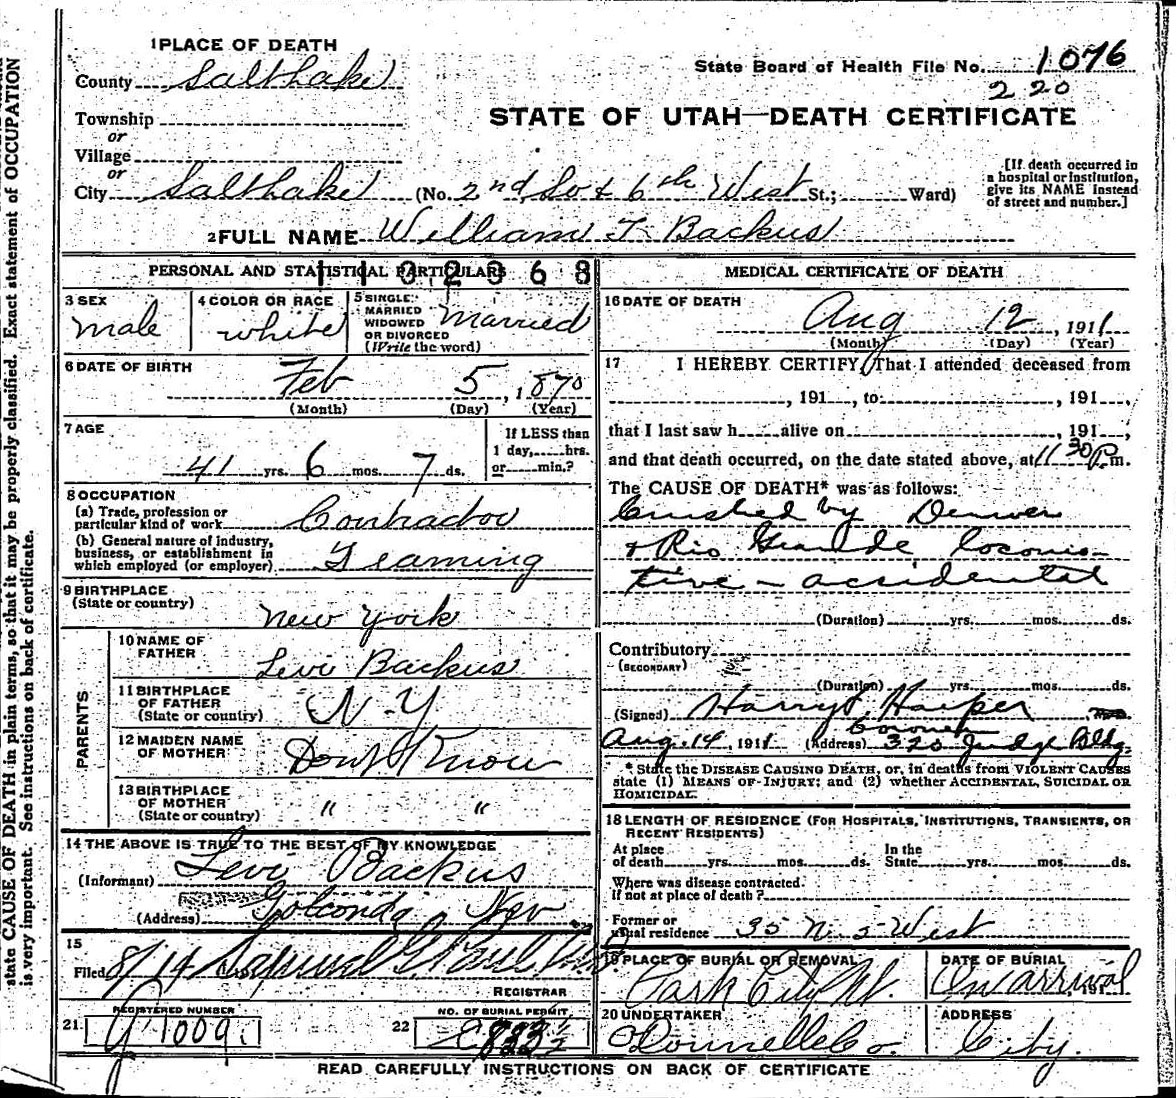 state CAUSE OF DEATH in plain terms, so that it may be properly classified. Exact statement of OCCUPATION
is very important. See instructions on back of certificate.
1 PLACE OF DEATH
County Salt Lake
State Board of Health File No. 1076
220
STATE OF UTAH—DEATH CERTIFICATE
Township
or
Village
or
City Salt Lake (No. 2nd So & 6th West St.; Ward)
[If death occurred in
a hospital or institution,
give its NAME instead
of street and number.]
2 FULL NAME William T. Backus
PERSONAL AND STATISTICAL PARTICULARS
1102368
3 SEX
male
4 COLOR OR RACE
white
5 SINGLE,
MARRIED
WIDOWED
OR DIVORCED
(Write the word)
married
6 DATE OF BIRTH
Feb 5, 1870
(Month) (Day) (Year)
7 AGE
41 yrs. 6 mos. 7 ds.
If LESS than
1 day, hrs.
or min.?
8 OCCUPATION
(a) Trade, profession or
particular kind of work Contractor
(b) General nature of industry,
business, or establishment in
which employed (or employer) Teaming
9 BIRTHPLACE
(State or country)
New York
PARENTS
10 NAME OF
FATHER
Levi Backus
11 BIRTHPLACE
OF FATHER
(State or country)
N-Y
12 MAIDEN NAME
OF MOTHER
Dont Know
13 BIRTHPLACE
OF MOTHER
(State or country)
" "
14 THE ABOVE IS TRUE TO THE BEST OF MY KNOWLEDGE
(Informant) Levi Backus
(Address) Golconda, Nev.
15
Filed 8/14
REGISTRAR
REGISTERED NUMBER
21. 1009
NO. OF BURIAL PERMIT
22
MEDICAL CERTIFICATE OF DEATH
16 DATE OF DEATH
Aug 12, 1911
(Month) (Day) (Year)
17 I HEREBY CERTIFY, That I attended deceased from
, 191 , to , 191 ,
that I last saw h alive on , 191 ,
and that death occurred, on the date stated above, at 11 30 P.m.
The CAUSE OF DEATH* was as follows:
Crushed by Denver
& Rio Grande locomo-
tive - accidental
(Duration) yrs. mos. ds.
Contributory
(SECONDARY)
(Duration) yrs. mos. ds.
(Signed) Harry Harper
Coroner
Aug. 14, 1911 (Address) 320 Judge Bldg.
* State the DISEASE CAUSING DEATH, or, in deaths from VIOLENT CAUSES
state (1) MEANS OF INJURY; and (2) whether ACCIDENTAL, SUICIDAL OR
HOMICIDAL.
18 LENGTH OF RESIDENCE (FOR HOSPITALS, INSTITUTIONS, TRANSIENTS, OR
RECENT RESIDENTS)
At place
of death yrs. mos. ds.
In the
State yrs. mos. ds.
Where was disease contracted.
If not at place of death?
Former or
usual residence 35 N. 5 West
19 PLACE OF BURIAL OR REMOVAL
Park City Ut.
DATE OF BURIAL
On arrival
, 191
20 UNDERTAKER
O'Donnell & Co.
ADDRESS
City.
READ CAREFULLY INSTRUCTIONS ON BACK OF CERTIFICATE